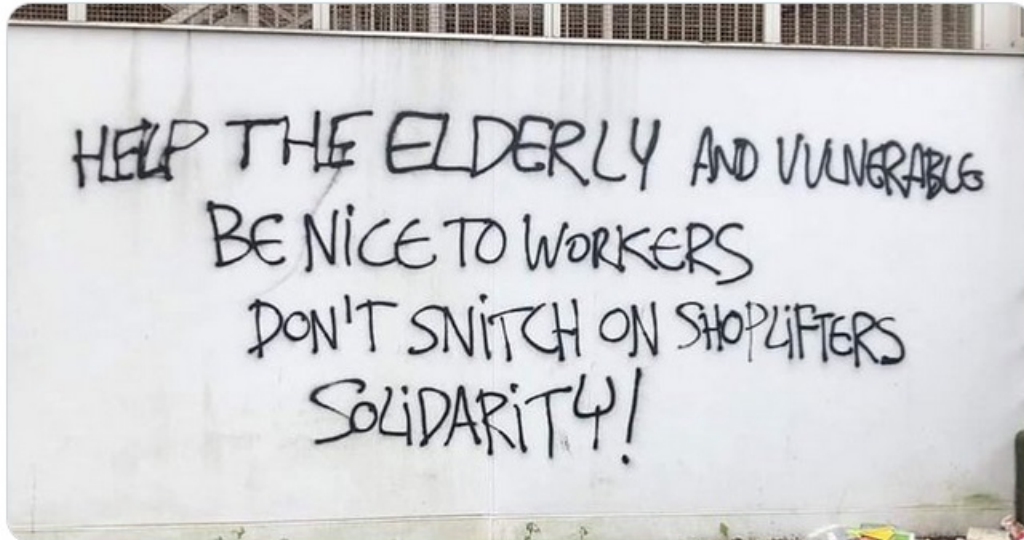 HELP THE ELDERLY AND VULNERABLE
BE NiCE TO WORKERS
DON'T SNiTCH ON SHOPLiFTERS
SOLiDARiTY!